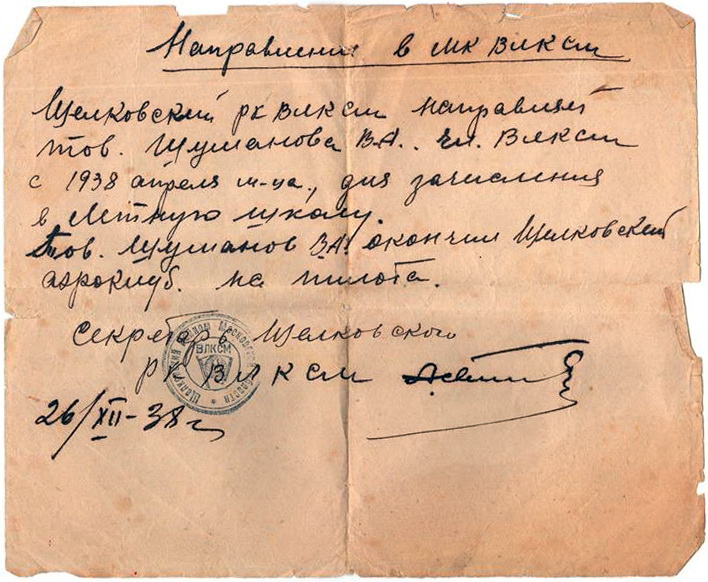 Направление в МК ВЛКСМ
Щелковский РК ВЛКСМ направляет
тов. Шуманова В.А. чл. ВЛКСМ
с 1938 апреля м-ца, для зачисления
в Летную школу.
Тов. Шуманов В.А. окончил Щелковский
аэроклуб. на пилота.
Секретарь Щелковского
РК ВЛКСМ
26/XII-38 г
ВЛКСМ